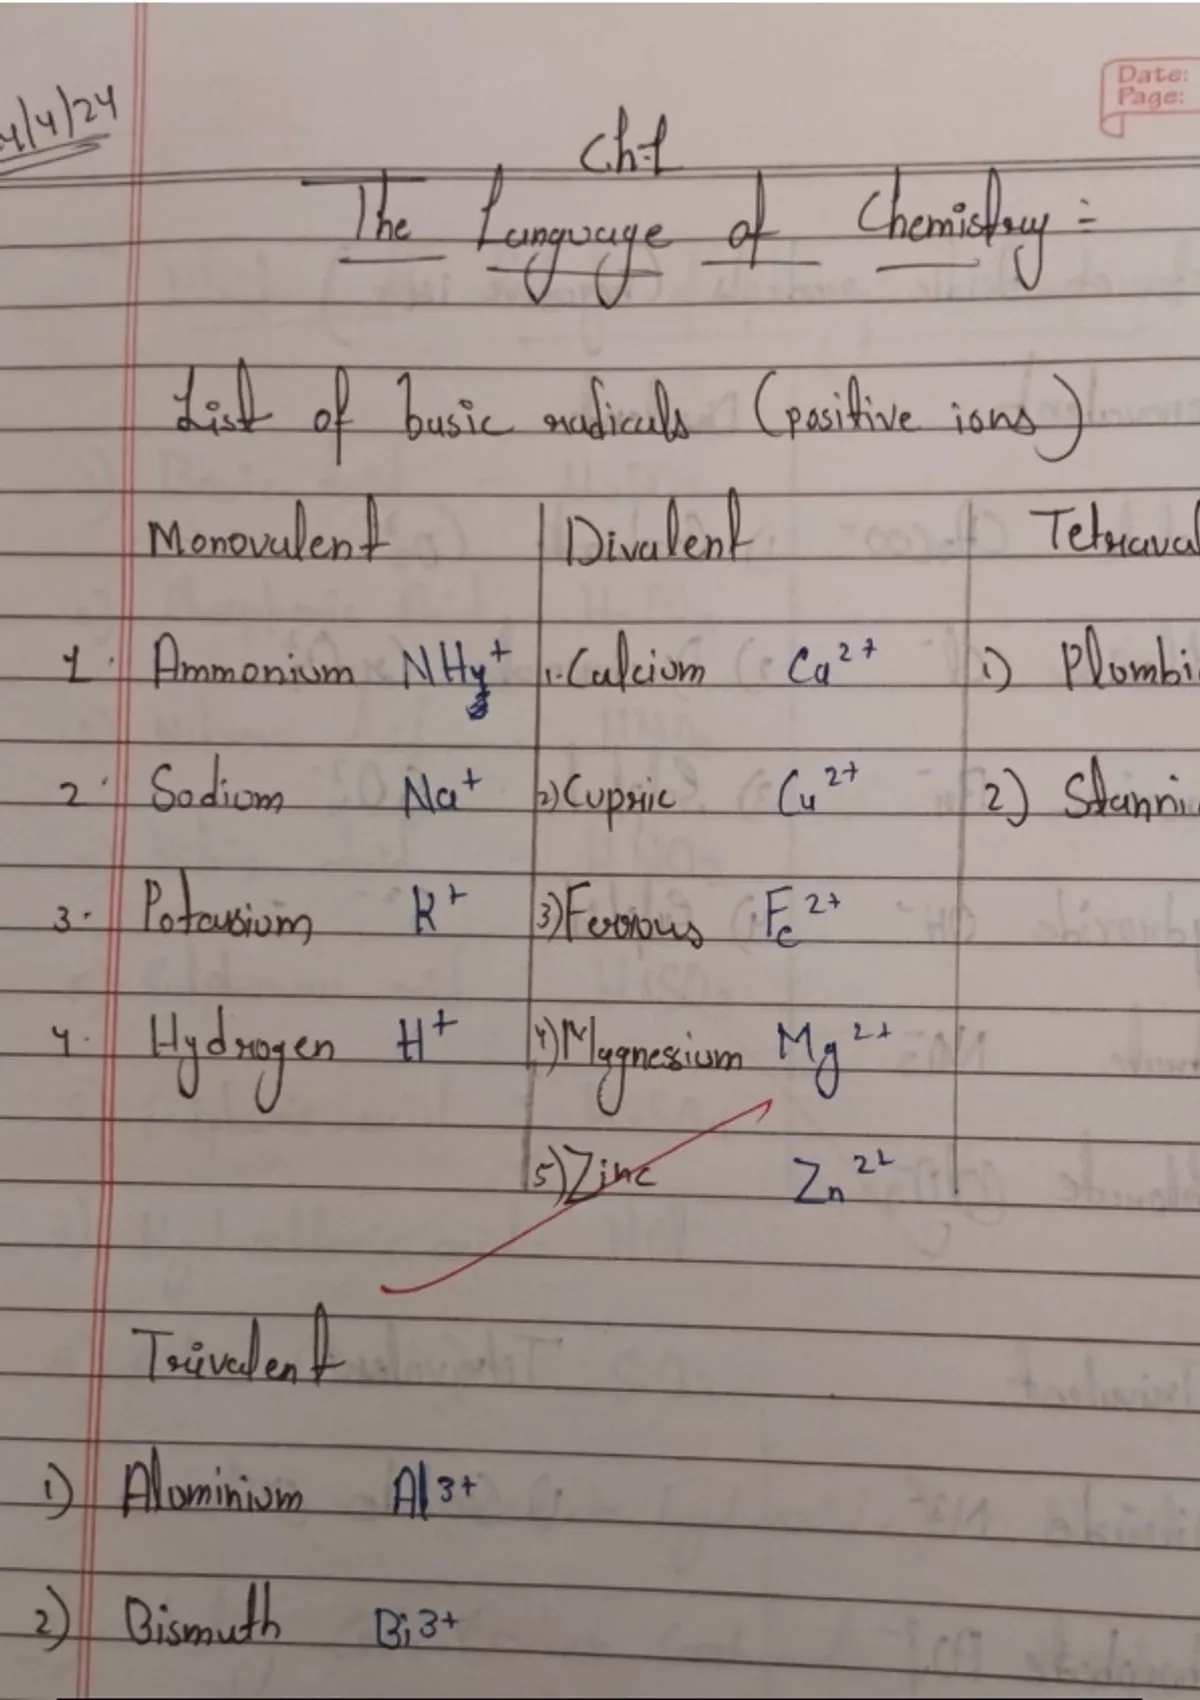 Date:
Page:
4/4/24
Ch-1
The Language of Chemistry :-
List of basic radicals (positive ions)
Monovalent Divalent Tetraval
1. Ammonium NH4+ 1. Calcium Ca2+ 1) Plumbi
2. Sodium Na+ 2) Cupric Cu2+ 2) Stanni
3. Potassium K+ 3) Ferrous Fe2+
4. Hydrogen H+ 4) Magnessium Mg2+
5) Zinc Zn2+
Trivalent
1) Aluminium Al3+
2) Bismuth Bi3+